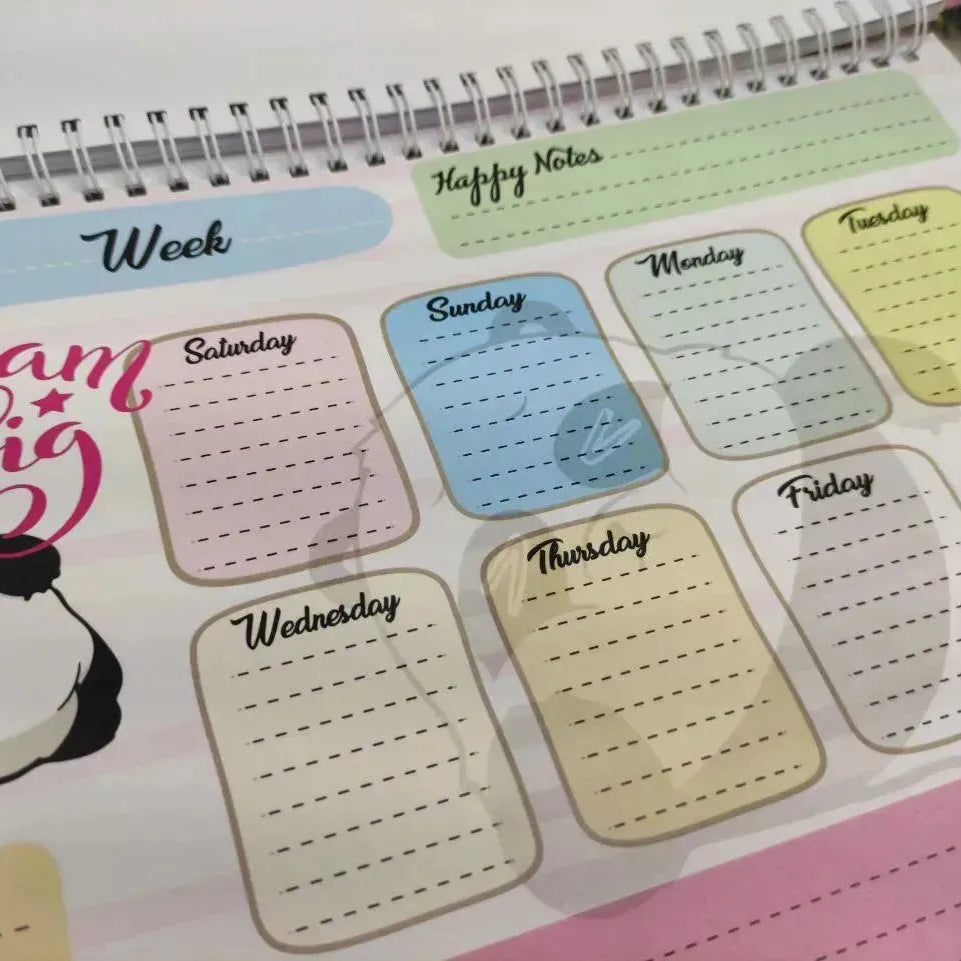 Happy Notes
Week
Tuesday
Monday
Sunday
Saturday
am
ig
Friday
Thursday
Wednesday